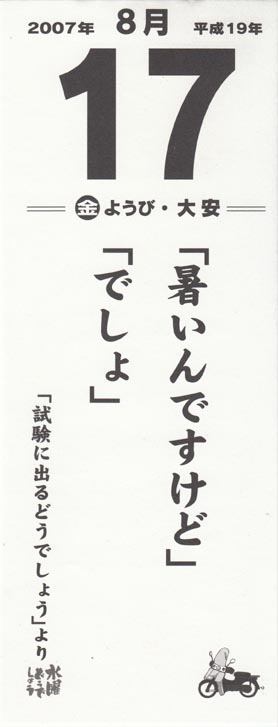 2007年 8月 平成19年
17
金ようび・大安
「暑いんですけど」
「でしょ」
「試験に出るどうでしょう」より
水曜どうでしょう